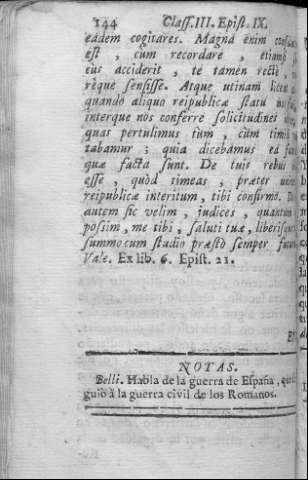 144 Class. III. Epist. IX.
eadem cogitares. Magna enim
est , cum recordare , etiamsi
cus acciderit , te tamen recte ,
rèque sensisse. Atque utinam licea
quando aliquo reipublicæ statu
interque nos conferre solicitudines
quas pertulimus tùm , cùm timi
tabamur ; quia dicebamus ea fu
quæ facta sunt. De tuis rebus
esse , quòd timeas , præter
reipublicæ interitum , tibi confirmo. De
autem sic velim , judices , quantum
possim , me tibi , saluti tuæ , liberisque
summo cum studio præstò semper futu
Vale. Ex lib. 6. Epist. 21.
NOTAS.
Belli. Habla de la guerra de España ,
guiò à la guerra civil de los Romanos.